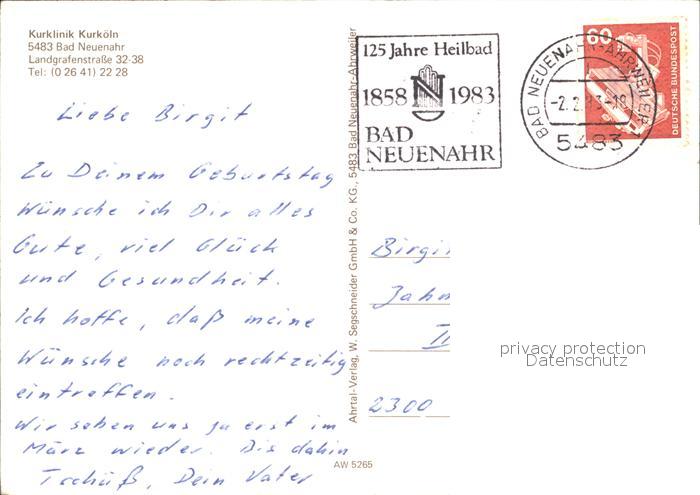 Kurklinik Kurköln
5483 Bad Neuenahr
Landgrafenstraße 32-38
Tel: (0 26 41) 22 28
Liebe Birgit
Zu Deinem Geburtstag
wünsche ich Dir alles
Gute, viel Glück
und Gesundheit.
Ich hoffe, daß meine
Wünsche noch rechtzeitig
eintreffen.
Wir sehen uns ja erst im
März wieder. Bis dahin
Tschüß, Dein Vater
Ahrtal-Verlag, W. Segschneider GmbH & Co. KG., 5483 Bad Neuenahr-Ahrweiler
AW 5265
125 Jahre Heilbad
1858 N 1983
BAD
NEUENAHR
BAD NEUENAHR-AHRWEILER 1
-2.2.83-18
5483
60
DEUTSCHE BUNDESPOST
Birgi
Jahn
II
2300
privacy protection
Datenschutz